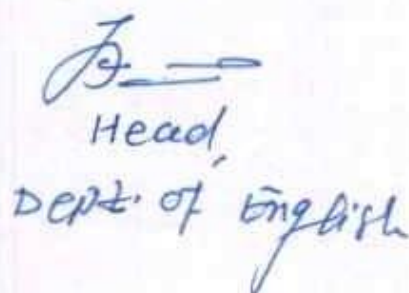 Head,
Dept. of English